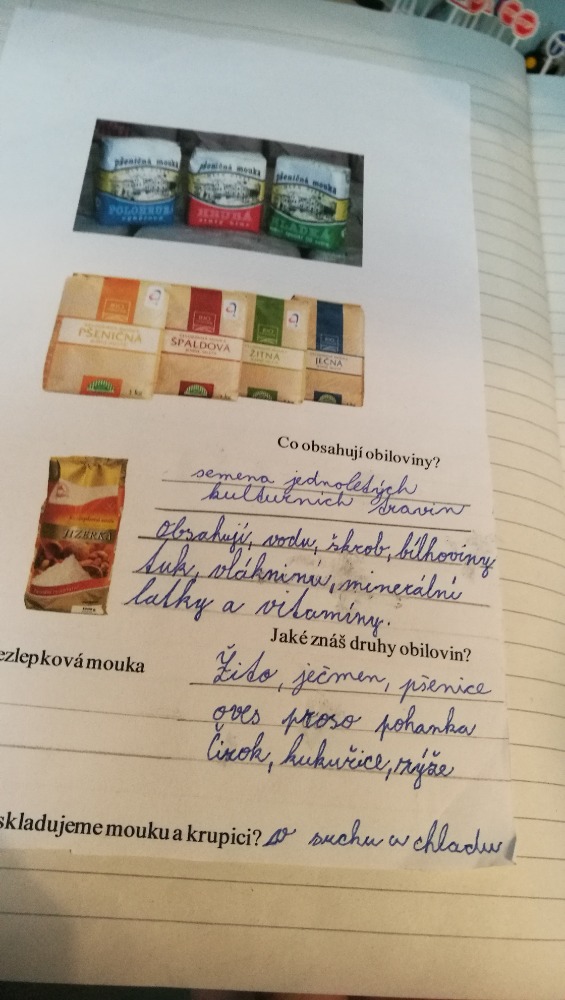 pšeničná mouka
POLOHRUBÁ
pšeničná mouka
HRUBÁ
pšeničná mouka
HLADKÁ
BIO
PŠENIČNÁ
BIO
ŠPALDOVÁ
BIO
ŽITNÁ
BIO
JEČNÁ
Co obsahují obiloviny?
semena jednoletých
kulturních travin
JIZERKA
obsahují, vodu, škrob, bílhoviny
tuk, vlákninu, minerální
latky a vitamíny.
Jaké znáš druhy obilovin?
ezlepková mouka
Žito, ječmen, pšenice
oves proso pohanka
Čirok, kukuřice, rýže
skladujeme mouku a krupici? v suchu a chladu